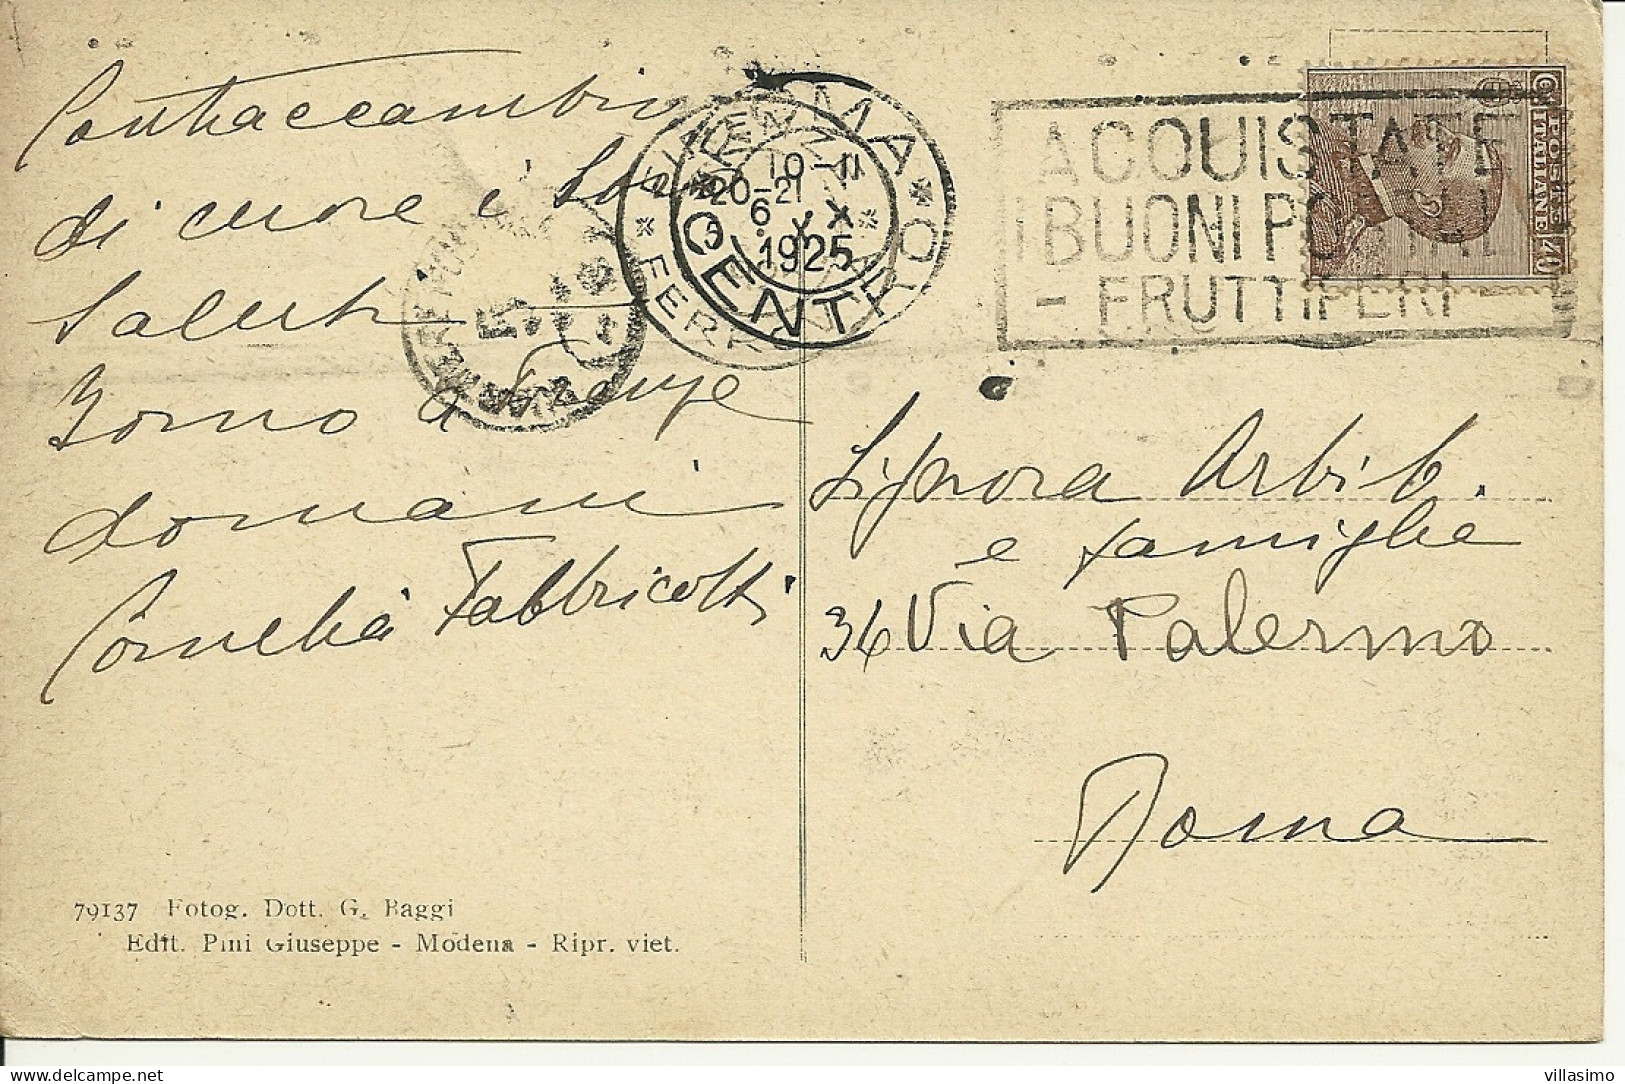 Contraccambio
di cuore i Loro
Saluti
Torno a Firenze
domani
Cornelia Fabbricotti
79137 Fotog. Dott. G. Baggi
Edit. Pini Giuseppe - Modena - Ripr. viet.
10-11
20-21
6 X
1925
FIRENZE
FERROVIA
ROMA
CENTRO
ACQUISTATE
I BUONI POSTALI
- FRUTTIFERI -
POSTE ITALIANE
40
Signora Arbib.
e famiglia
36 Via Palermo
Roma
villasimo
delcampe.net